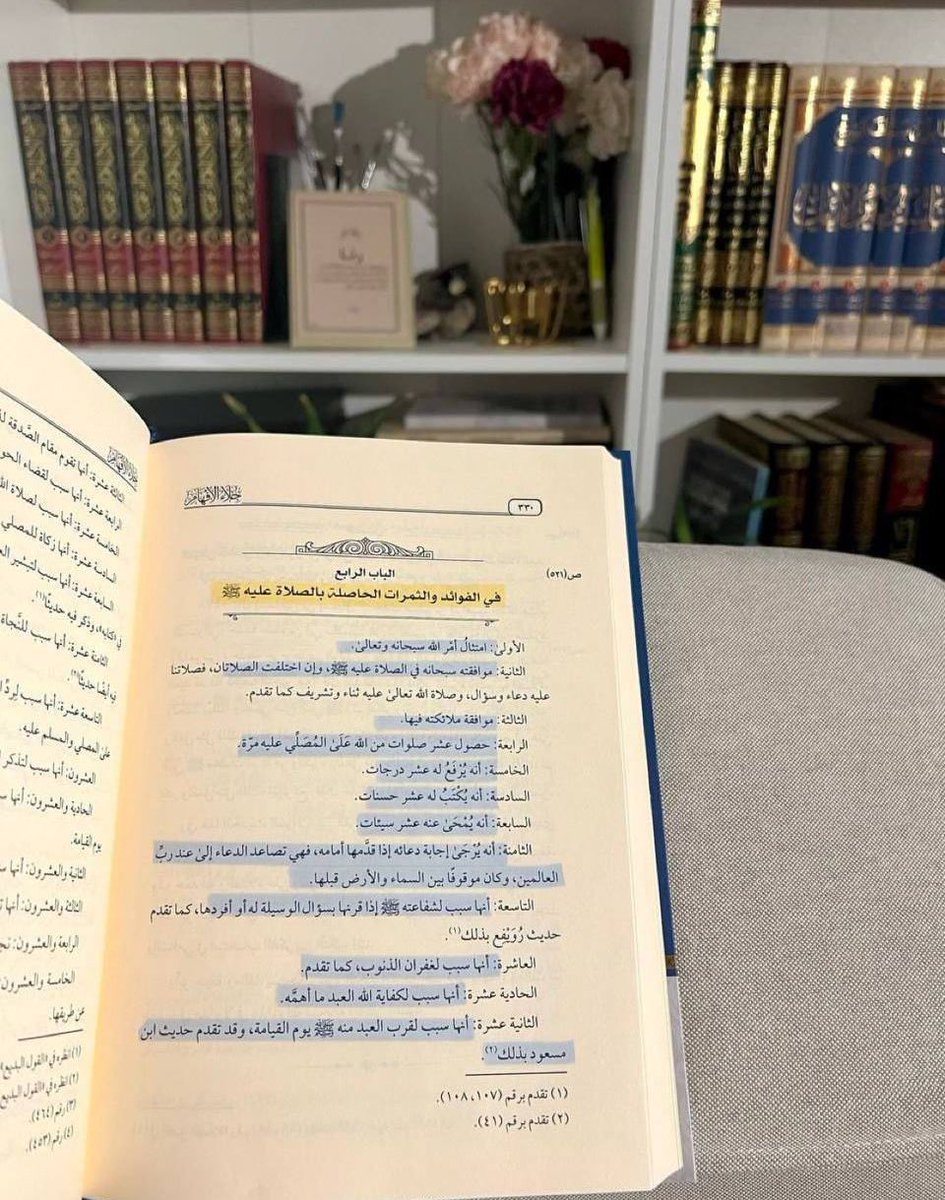 جلاء الأفهام
٣٣٠
الباب الرابع
ص(٥٢١)
في الفوائد والثمرات الحاصلة بالصلاة عليه ﷺ
الأولىٰ: امتثالُ أمْر الله سبحانه وتعالىٰ.
الثانية: موافقته سبحانه في الصلاة عليه ﷺ، وإن اختلفت الصلاتان، فصلاتنا
عليه دعاء وسؤال، وصلاة الله تعالىٰ عليه ثناء وتشريف كما تقدم.
الثالثة: موافقة ملائكته فيها.
الرابعة: حصول عشر صلوات من الله عَلَىٰ المُصَلِّي عليه مرّة.
الخامسة: أنه يُرْفَعُ له عشر درجات.
السادسة: أنه يُكْتَبُ له عشر حسنات.
السابعة: أنه يُمْحَىٰ عنه عشر سيئات.
الثامنة: أنه يُرْجَىٰ إجابة دعائه إذا قدَّمها أمامه، فهي تصاعد الدعاء إلىٰ عند ربِّ
العالمين، وكان موقوفًا بين السماء والأرض قبلها.
التاسعة: أنها سبب لشفاعته ﷺ إذا قرنها بسؤال الوسيلة له أو أفردها، كما تقدم
حديث رُوَيْفِع بذلك(١).
العاشرة: أنها سبب لغفران الذنوب، كما تقدم.
الحادية عشرة: أنها سبب لكفاية الله العبد ما أهمَّه.
الثانية عشرة: أنها سبب لقرب العبد منه ﷺ يوم القيامة، وقد تقدم حديث ابن
مسعود بذلك(٢).
(١) تقدم برقم (١٠٧، ١٠٨).
(٢) تقدم برقم (٤١).
جلاء الأفهام
الثالثة عشرة: أنها تقوم مقام الصَّدقة
الرابعة عشرة: أنها سبب لقضاء
الخامسة عشرة: أنها سبب لصلاة
السادسة عشرة: أنها زكاة للمصلي
السابعة عشرة: أنها سبب لتبشير
في «كتابه»، وذكر فيه حديثًا(١).
الثامنة عشرة: أنها سبب للنَّجاة
فيه أيضًا حديثًا(٢).
التاسعة عشرة: أنها سبب لِردِّ
على المصلي والمسلم عليه.
العشرون: أنها سبب لتذكر
الحادية والعشرون: أنها
يوم القيامة.
الثانية والعشرون: أنها
الثالثة والعشرون: أنها
الرابعة والعشرون:
الخامسة والعشرون:
عن طريقها.
(١) انظره في «القول البديع»
(٢) انظره في «القول البديع
(٣) رقم (٤٦٤).
(٤) رقم (٤٥٣).